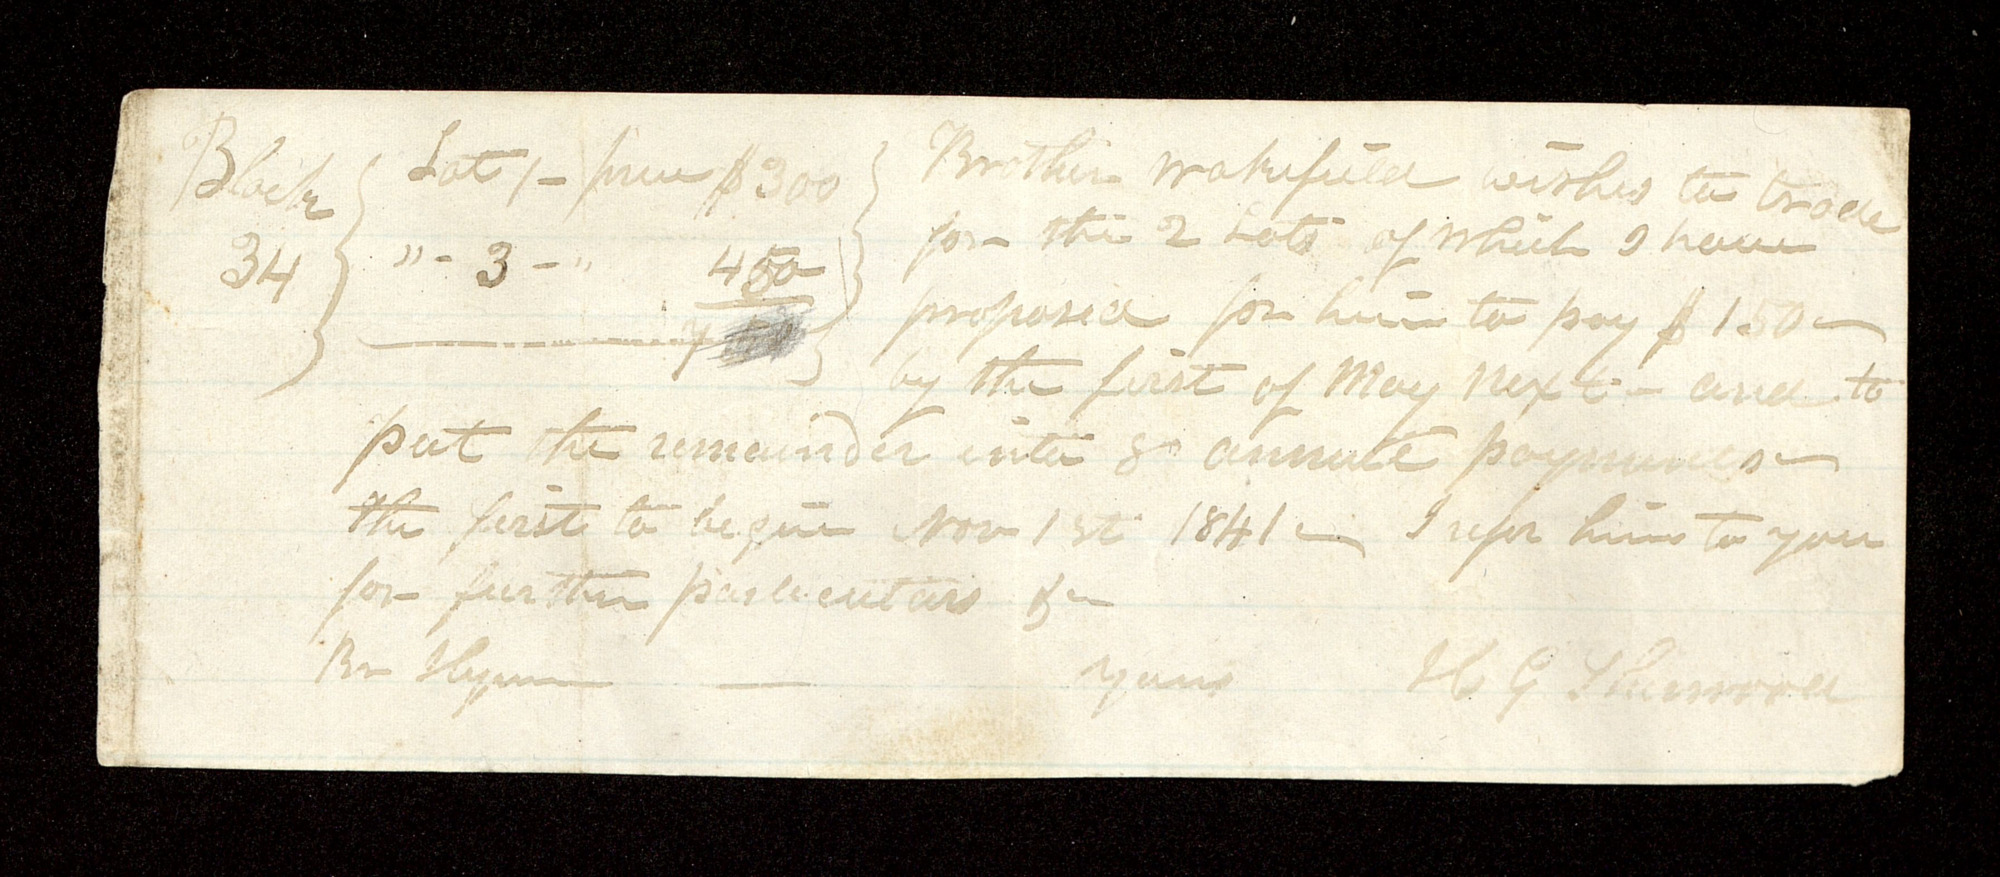 Block 34
Lot 1 - price $300
" - 3 - " 450
7
Brother Wakefield wishes to trade
for the 2 Lots of which I have
proposed for him to pay $150—
by the first of May Next - and to
put the remainder into 8 annule payments—
the first to begin Nov 1st 1841— I refer him to you
for further particulars &—
Br — yours H G Sherwood